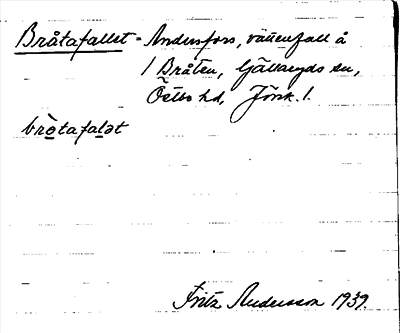 Bråtafallet = Andersfors, vattenfall å
1 Bråten, Gällaryds sn,
Östbo hd, Jönk. l.
bròtafalət
Fritz Andersson 1939.